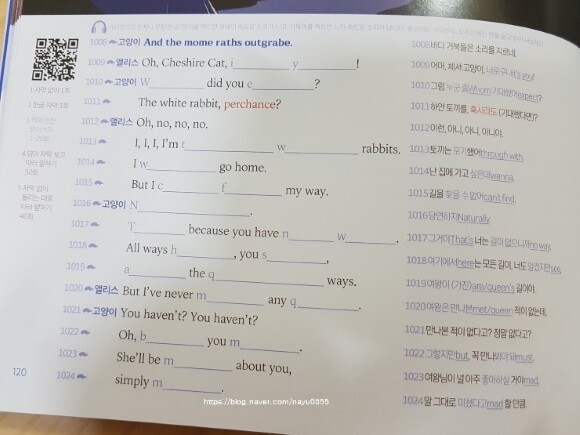 1008 고양이 And the mome raths outgrabe.
1009 앨리스 Oh, Cheshire Cat, i__________ y__________!
1010 고양이 W__________ did you e__________?
1011 The white rabbit, perchance?
1012 앨리스 Oh, no, no, no.
1013 I, I, I, I'm t__________ w__________ rabbits.
1014 I w__________ go home.
1015 But I c__________ f__________ my way.
1016 고양이 N__________.
1017 T__________ because you have n__________ w__________.
1018 All ways h__________, you s__________,
1019 a__________ the q__________ ways.
1020 앨리스 But I've never m__________ any q__________.
1021 고양이 You haven't? You haven't?
1022 Oh, b__________ you m__________.
1023 She'll be m__________ about you,
1024 simply m__________.
120
1 자막 없이 1회
2 한글 자막 1회
4 영어 자막 보고
따라 말하기
5 자막 없이
들리는 대로
따라 말하기
40회
1008 바다 거북들은 소리를 지르네.
1009 어머, 체셔 고양이, 너로구나it's you!
1010 그럼 누굴 줄Whom 기대했어expect?
1011 하얀 토끼를, 혹시라도 (기대했다면)?
1012 이런, 아니, 아니, 아니야.
1013 토끼는 포기했어through with.
1014 난 집에 가고 싶은데wanna.
1015 길을 찾을 수 없어can't find.
1016 당연하지Naturally.
1017 그거야That's 너는 길이 없으니까no way.
1018 여기에서here는 모든 길이, 너도 알겠지만see,
1019 여왕이 (가진)are/queen's 길이야.
1020 여왕은 만나본met/queen 적이 없는데.
1021 만나본 적이 없다고? 정말 없다고?
1022 그렇지만but, 꼭 만나봐야 돼must.
1023 여왕님이 널 아주 좋아하실 거야mad.
1024 말 그대로 미쳤다고mad 할 만큼.
https://blog.naver.com/nayu0355